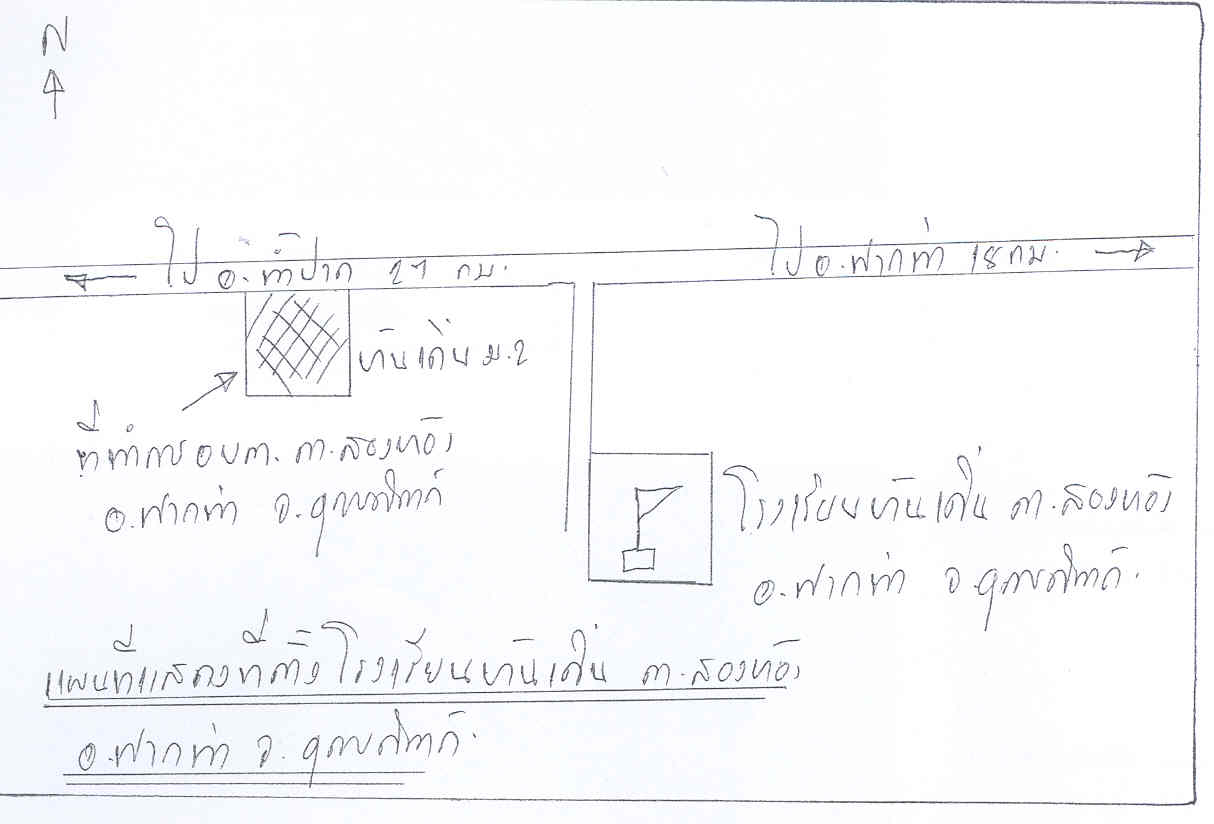 N
ไป อ.ท่าปลา 27 กม.
ไป อ.ฟากท่า 18 กม.
ม.2
ที่ทำการ อบต. ต.สองห้อง
อ.ฟากท่า จ.อุตรดิตถ์
โรงเรียน ต.สองห้อง
อ.ฟากท่า จ.อุตรดิตถ์.
แผนที่แสดงที่ตั้งโรงเรียน ต.สองห้อง
อ.ฟากท่า จ.อุตรดิตถ์.